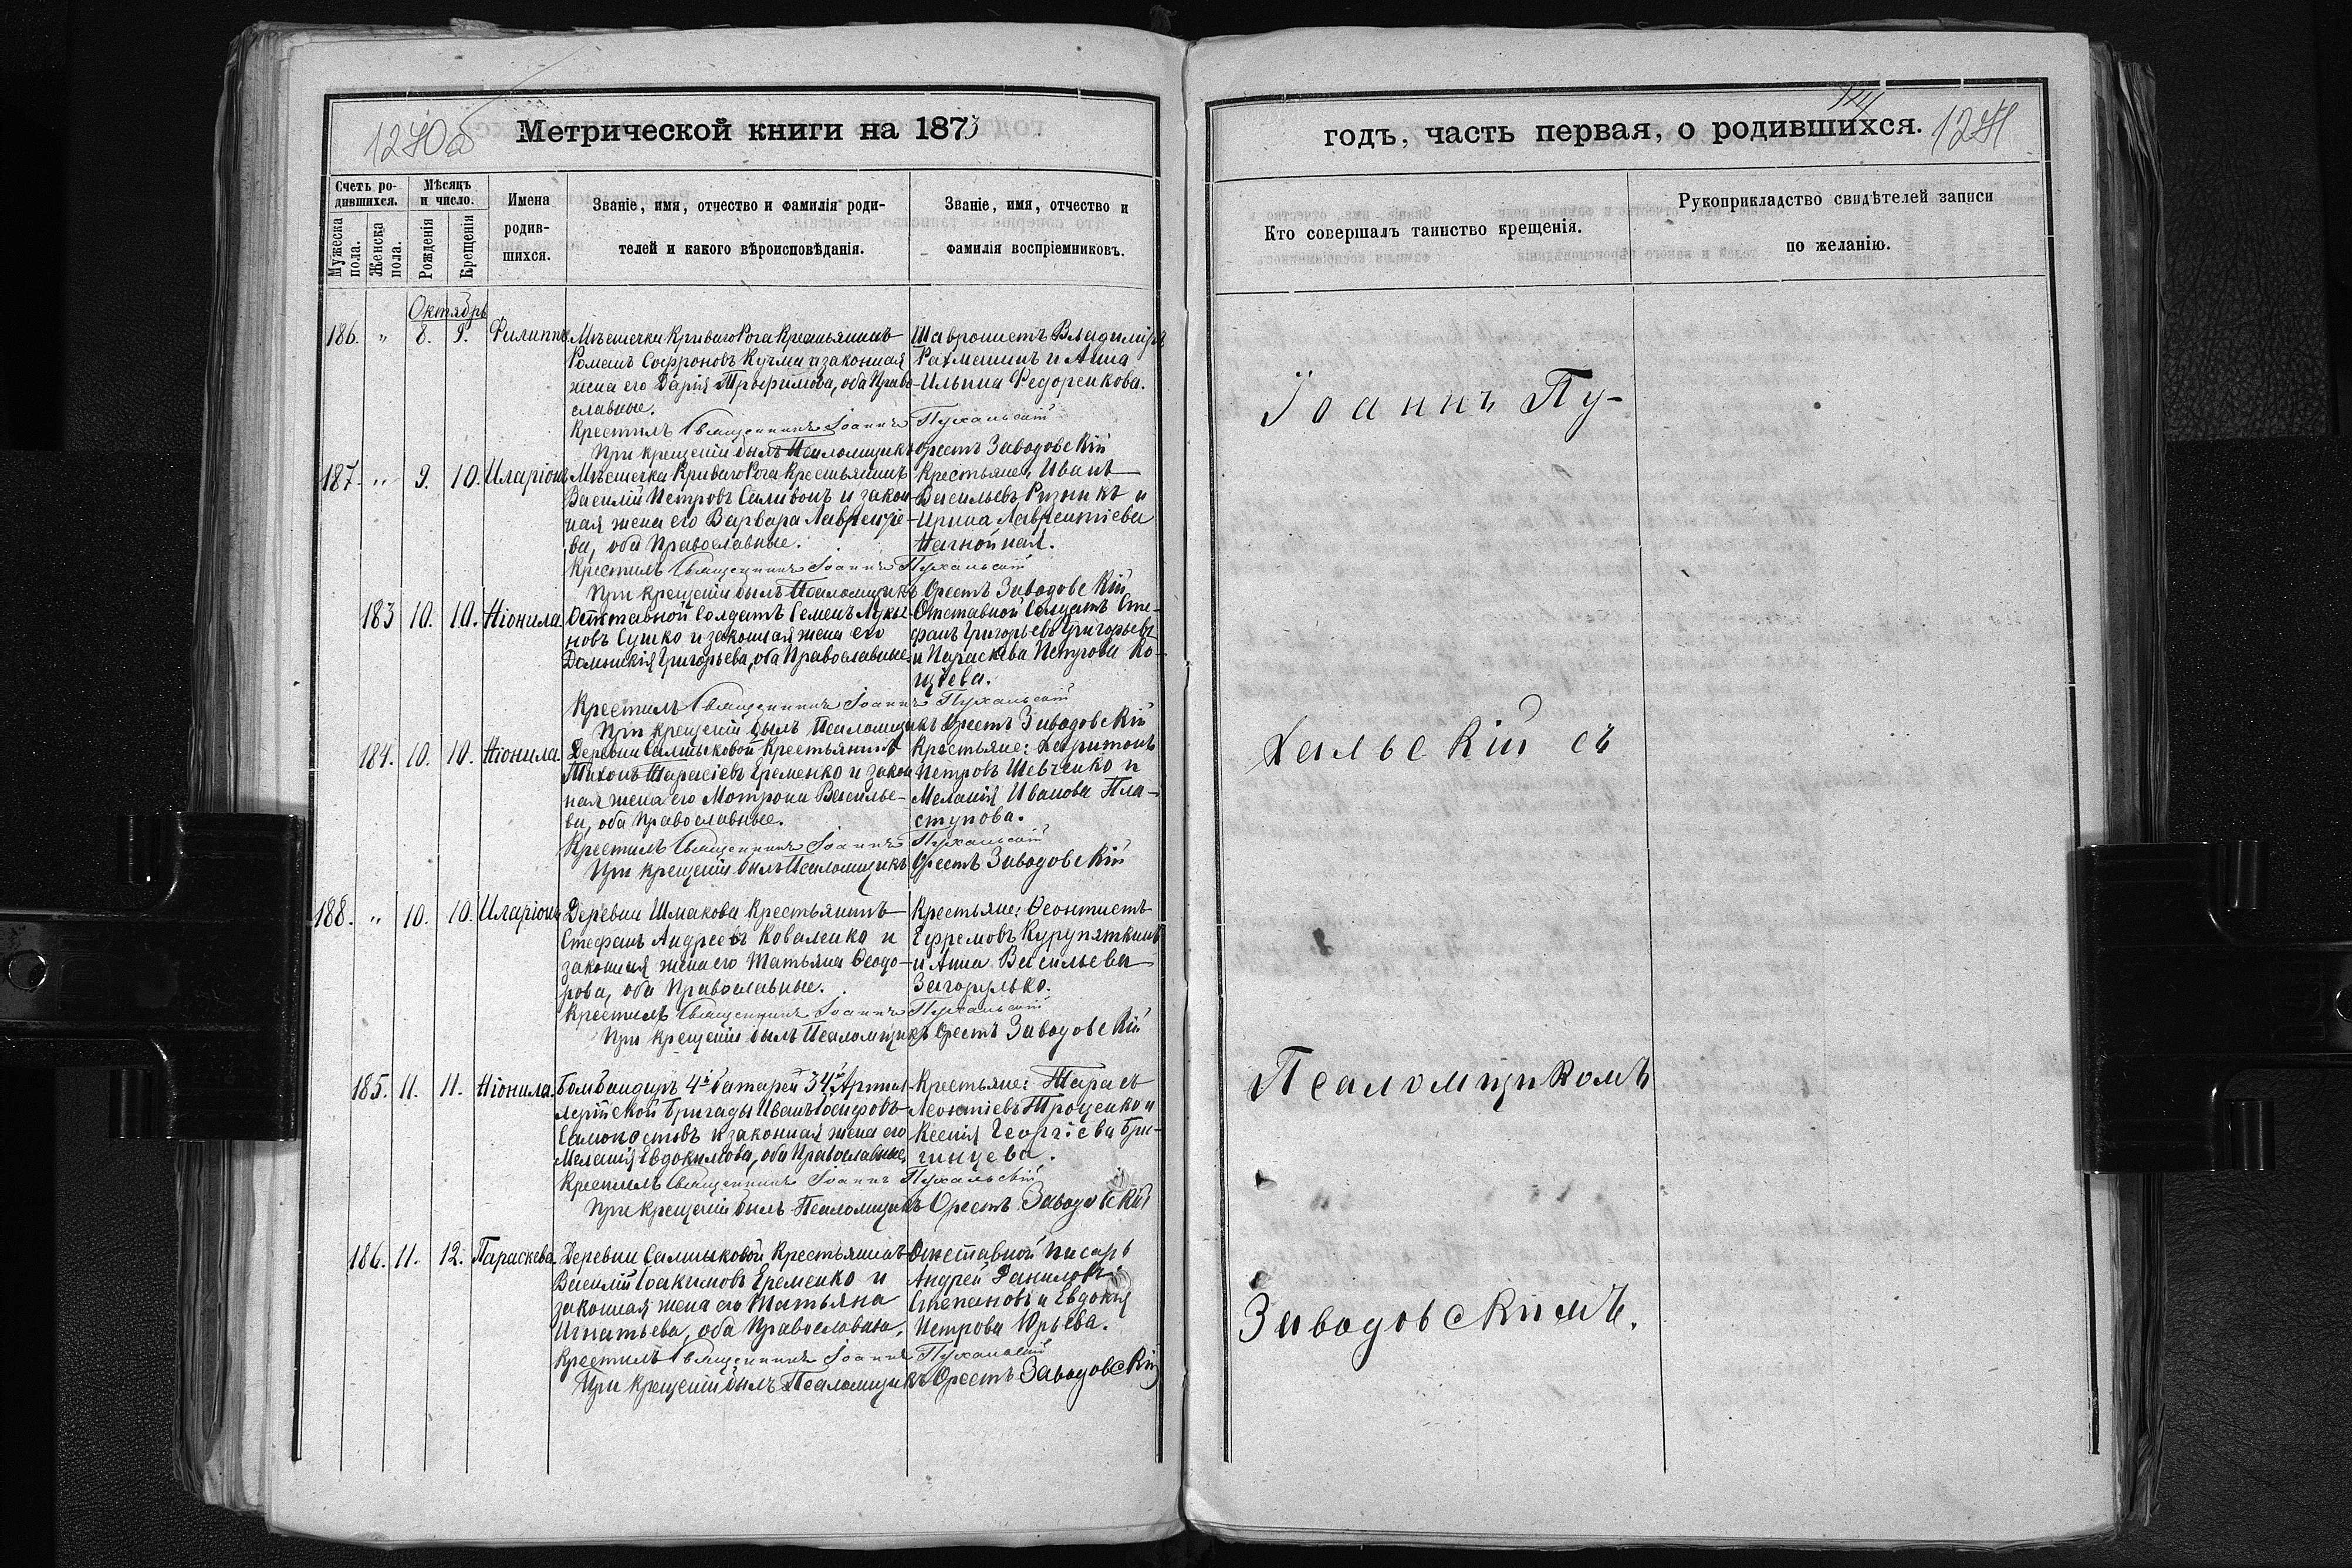 1240об
Метрической книги на 1873
Счетъ ро-
дившихся.
Мужеска пола.
Женска пола.
Мѣсяцъ
и число.
Рожденія
Крещенія
Имена
родив-
шихся.
Званіе, имя, отчество и фамилія роди-
телей и какого вѣроисповѣданія.
Званіе, имя, отчество и
фамилія воспріемниковъ.
Октябрь
186. „ 8. 9. Филиппъ
Мѣстечка Криваго Рога Крестьянинъ
Романъ Софроновъ Кучма и законная
жена его Дарія Трофимова, оба Право-
славные.
Владиміръ
Рахманинъ и Анна
Ильина Федоренкова.
Крестилъ Священникъ Іоаннъ Пухальскій
При крещеніи былъ Псаломщикъ Орестъ Заводовскій
187. „ 9. 10. Иларіонъ
Мѣстечка Криваго Рога Крестьянинъ
Василій Петровъ Саливонъ и закон-
ная жена его Варвара Лаврентіе-
ва, оба Православные.
Крестьяне, Иванъ
Васильевъ Ризникъ и
Ирина Лаврентіева
Крестилъ Священникъ Іоаннъ Пухальскій
При крещеніи былъ Псаломщикъ Орестъ Заводовскій
183 10. 10. Ніонила.
Отставной Солдатъ Семенъ Луки-
новъ Сушко и законная жена его
Домникія Григорьева, оба Православные.
Отставной Солдатъ Сте-
фанъ Григорьевъ Григорьевъ
и Параскева Петрова Ко-
щіева.
Крестилъ Священникъ Іоаннъ Пухальскій
При крещеніи былъ Псаломщикъ Орестъ Заводовскій
184. 10. 10. Ніонила.
Деревни Салтыковой Крестьянинъ
Тихонъ Тарасіевъ Еременко и закон
ная жена его Мотрона Василье-
ва, оба Православные.
Крестьяне: Харитонъ
Петровъ Шевченко и
Меланія Иванова Пла-
стунова.
Крестилъ Священникъ Іоаннъ Пухальскій
При крещеніи былъ Псаломщикъ Орестъ Заводовскій
188. „ 10. 10. Иларіонъ
Деревни Шмакова Крестьянинъ
Стефанъ Андреевъ Коваленко и
законная жена его Татьяна Ѳеодо-
рова, оба Православные.
Крестьяне: Ѳеоктистъ
Ефремовъ Курупяткинъ
и Анна Васильева
Загорулько.
Крестилъ Священникъ Іоаннъ Пухальскій
При крещеніи былъ Псаломщикъ Орестъ Заводовскій
185. 11. 11. Ніонила.
Бомбандиръ 4й батареи 34й Артил
лерійской Бригады Иванъ Іосифовъ
Самопостовъ и законная жена его
Меланія Евдокимова, оба Православные.
Крестьяне: Тарасъ
Леонтіевъ Троценко и
Ксенія Георгіева Бри-
гинцева.
Крестилъ Священникъ Іоаннъ Пухальскій
При крещеніи былъ Псаломщикъ Орестъ Заводовскій
186. 11. 12. Параскева.
Деревни Салтыковой Крестьянинъ
Василій Іоакимовъ Еременко и
законная жена его Татьяна
Игнатьева, оба Православны.
Отставной писарь
Андрей Даниловъ
Степановъ и Евдокія
Петрова Юрьева.
Крестилъ Священникъ Іоаннъ Пухальскій
При крещеніи былъ Псаломщикъ Орестъ Заводовскій
годъ, часть первая, о родившихся.
1241
Кто совершалъ таинство крещенія.
Рукоприкладство свидѣтелей записи
по желанію.
Іоаннъ Пу-
хальскій съ
Псаломщикомъ
Заводовскимъ.